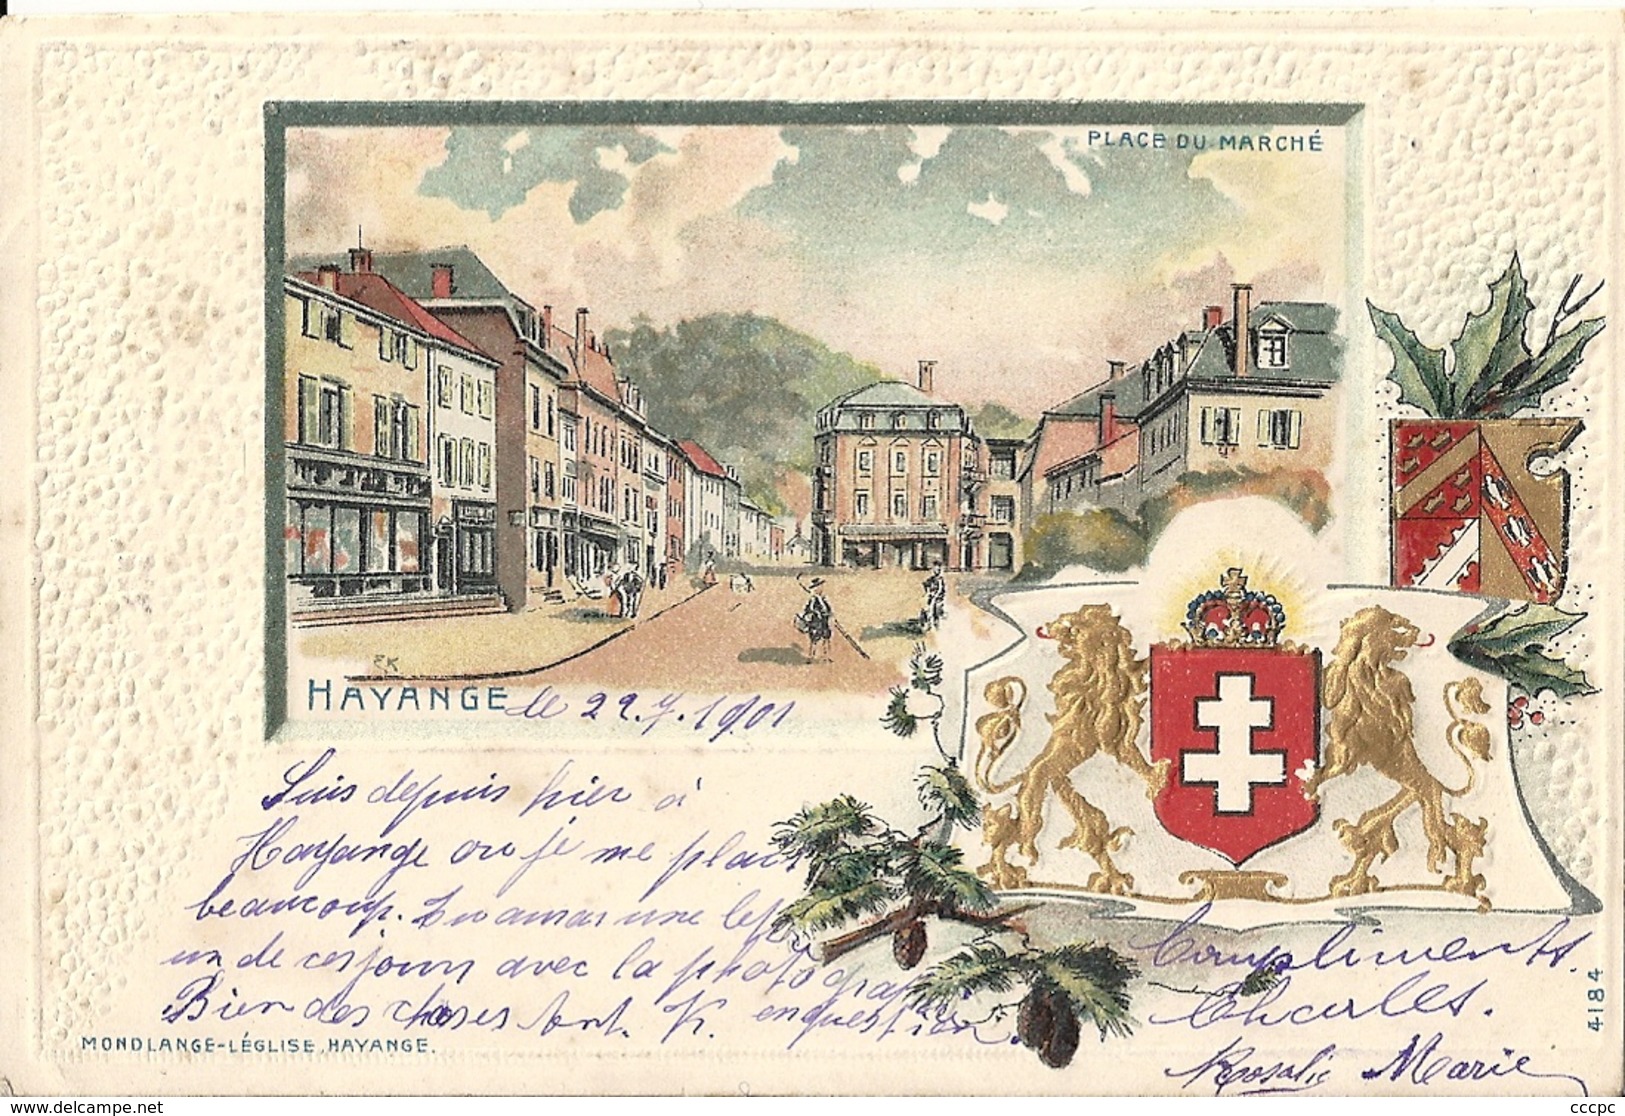 PLACE DU MARCHÉ
EK
HAYANGE le 22.7.1901
Suis depuis hier à
Hayange ou je me plais
beaucoup. Tu auras une
un de ces jours avec la photographie
Bien des choses Tont. K. en question.
Compliments.
Charles.
Rosalie Marie
MONDLANGE-LÉGLISE, HAYANGE.
4184
cccpc